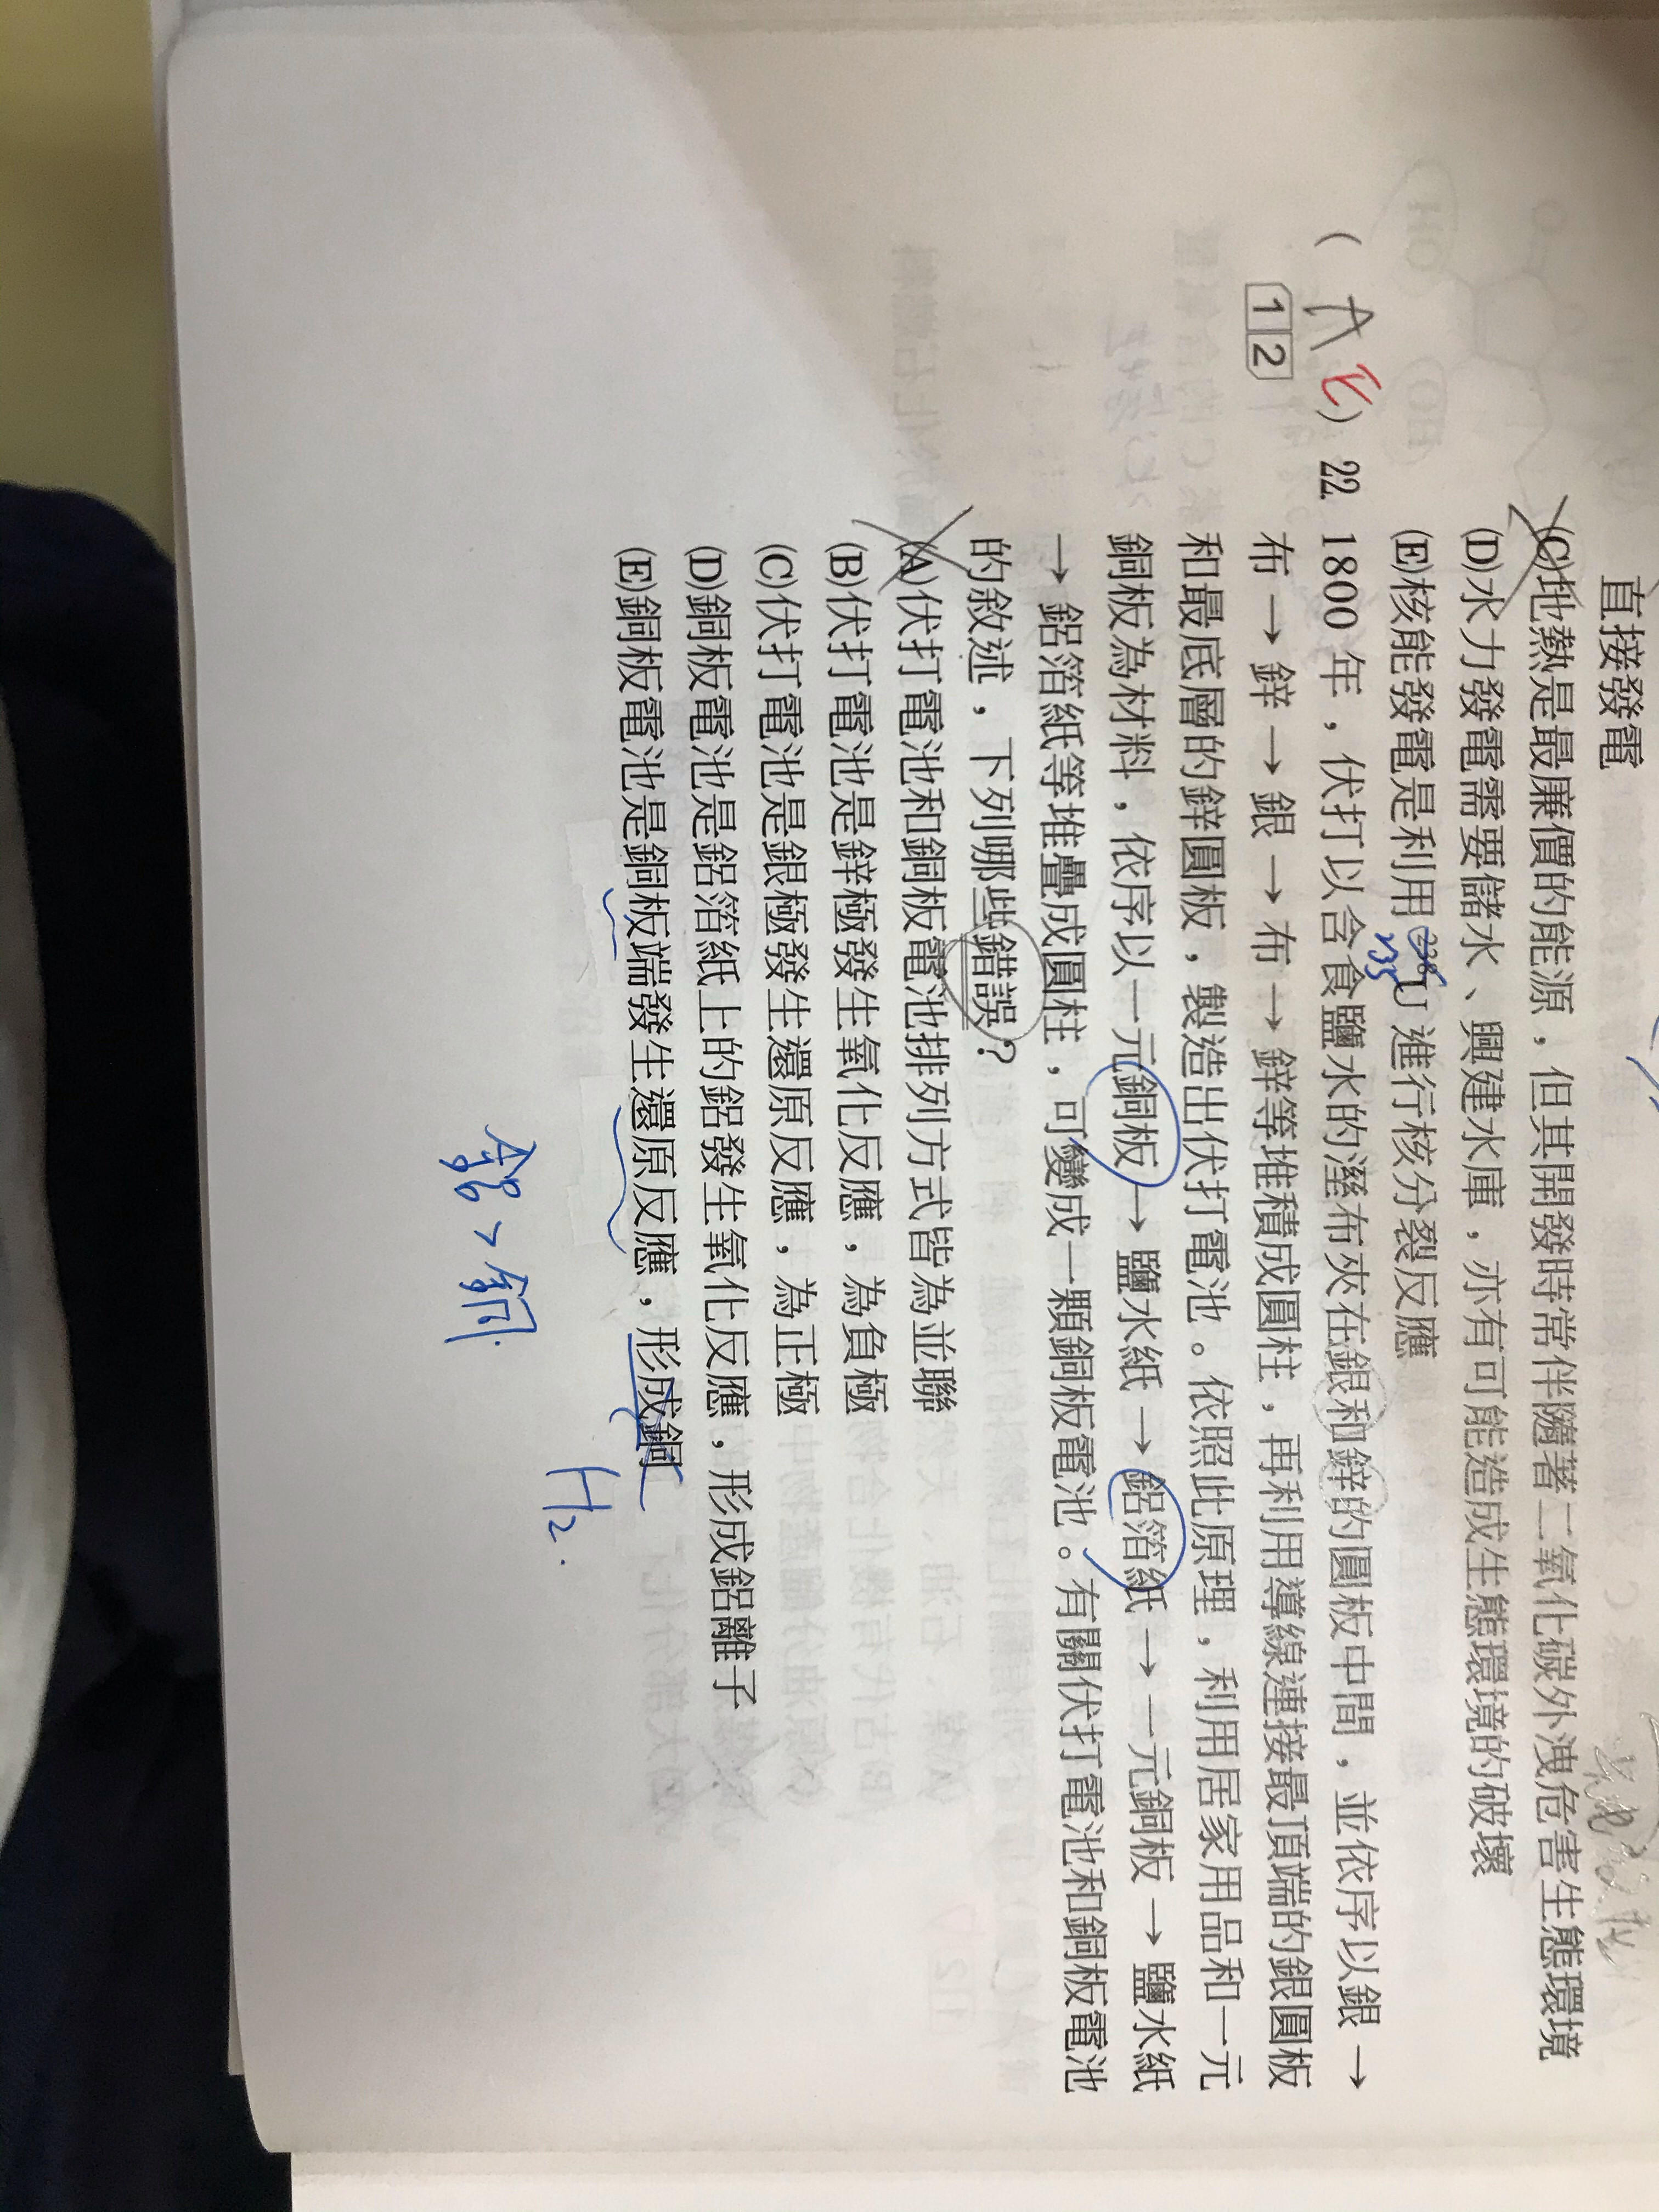 直接發電
(C)地熱是最廉價的能源，但其開發時常伴隨著二氧化碳外洩危害生態環境
(D)水力發電需要儲水、興建水庫，亦有可能造成生態環境的破壞
(E)核能發電是利用 238U 進行核分裂反應
235
(A E) 22. 1800 年，伏打以含食鹽水的溼布夾在銀和鋅的圓板中間，並依序以銀→
12 布→鋅→銀→布→鋅等堆積成圓柱，再利用導線連接最頂端的銀圓板
和最底層的鋅圓板，製造出伏打電池。依照此原理，利用居家用品和一元
銅板為材料，依序以一元銅板→鹽水紙→鋁箔紙→一元銅板→鹽水紙
→鋁箔紙等堆疊成圓柱，可變成一顆銅板電池。有關伏打電池和銅板電池
的敘述，下列哪些錯誤？
(A)伏打電池和銅板電池排列方式皆為並聯
(B)伏打電池是鋅極發生氧化反應，為負極
(C)伏打電池是銀極發生還原反應，為正極
(D)銅板電池是鋁箔紙上的鋁發生氧化反應，形成鋁離子
(E)銅板電池是銅板端發生還原反應，形成銅
H2.
鋁>銅.